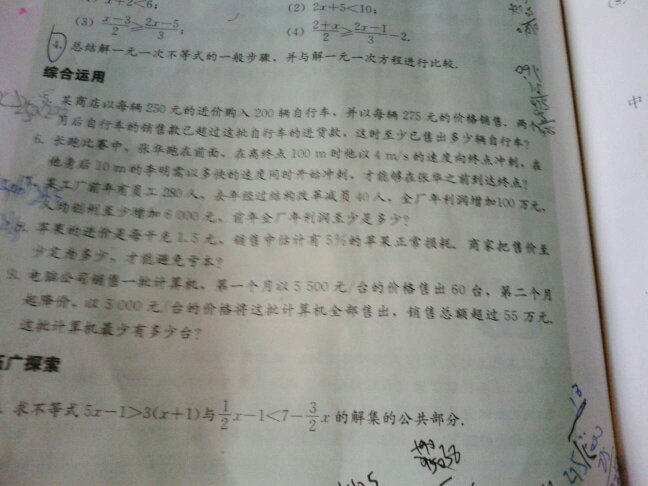 (1) x+2<6; (2) 2x+5<10;
(3) \frac{x-3}{2}≥\frac{2x-5}{3}; (4) \frac{2+x}{2}≥\frac{2x-1}{3}-2.
4. 总结解一元一次不等式的一般步骤，并与解一元一次方程进行比较.
综合运用
某商店以每辆250元的进价购入200辆自行车，并以每辆275元的价格销售. 两个
月后自行车的销售款已超过这批自行车的进货款，这时至少已售出多少辆自行车？
6. 长跑比赛中，张华跑在前面，在离终点100 m时他以4 m/s的速度向终点冲刺，在
他身后10 m的李明需以多快的速度同时开始冲刺，才能够在张华之前到达终点？
某工厂前年有员工280人，去年经过结构改革减员40人，全厂年利润增加100万元，
人均创利至少增加6 000元，前年全厂年利润至少是多少？
苹果的进价是每千克1.5元，销售中估计有5%的苹果正常损耗. 商家把售价至
少定为多少，才能避免亏本？
9. 电脑公司销售一批计算机，第一个月以5 500元/台的价格售出60台，第二个月
起降价，以5 000元/台的价格将这批计算机全部售出，销售总额超过55万元.
这批计算机最少有多少台？
拓广探索
求不等式5x-1>3(x+1)与\frac{1}{2}x-1<7-\frac{3}{2}x的解集的公共部分.